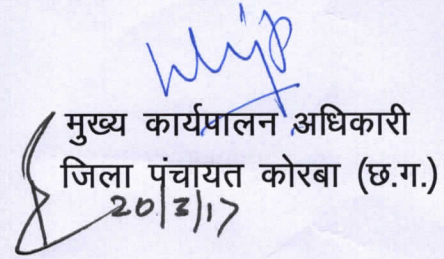 मुख्य कार्यपालन अधिकारी
जिला पंचायत कोरबा (छ.ग.)
20/3/17